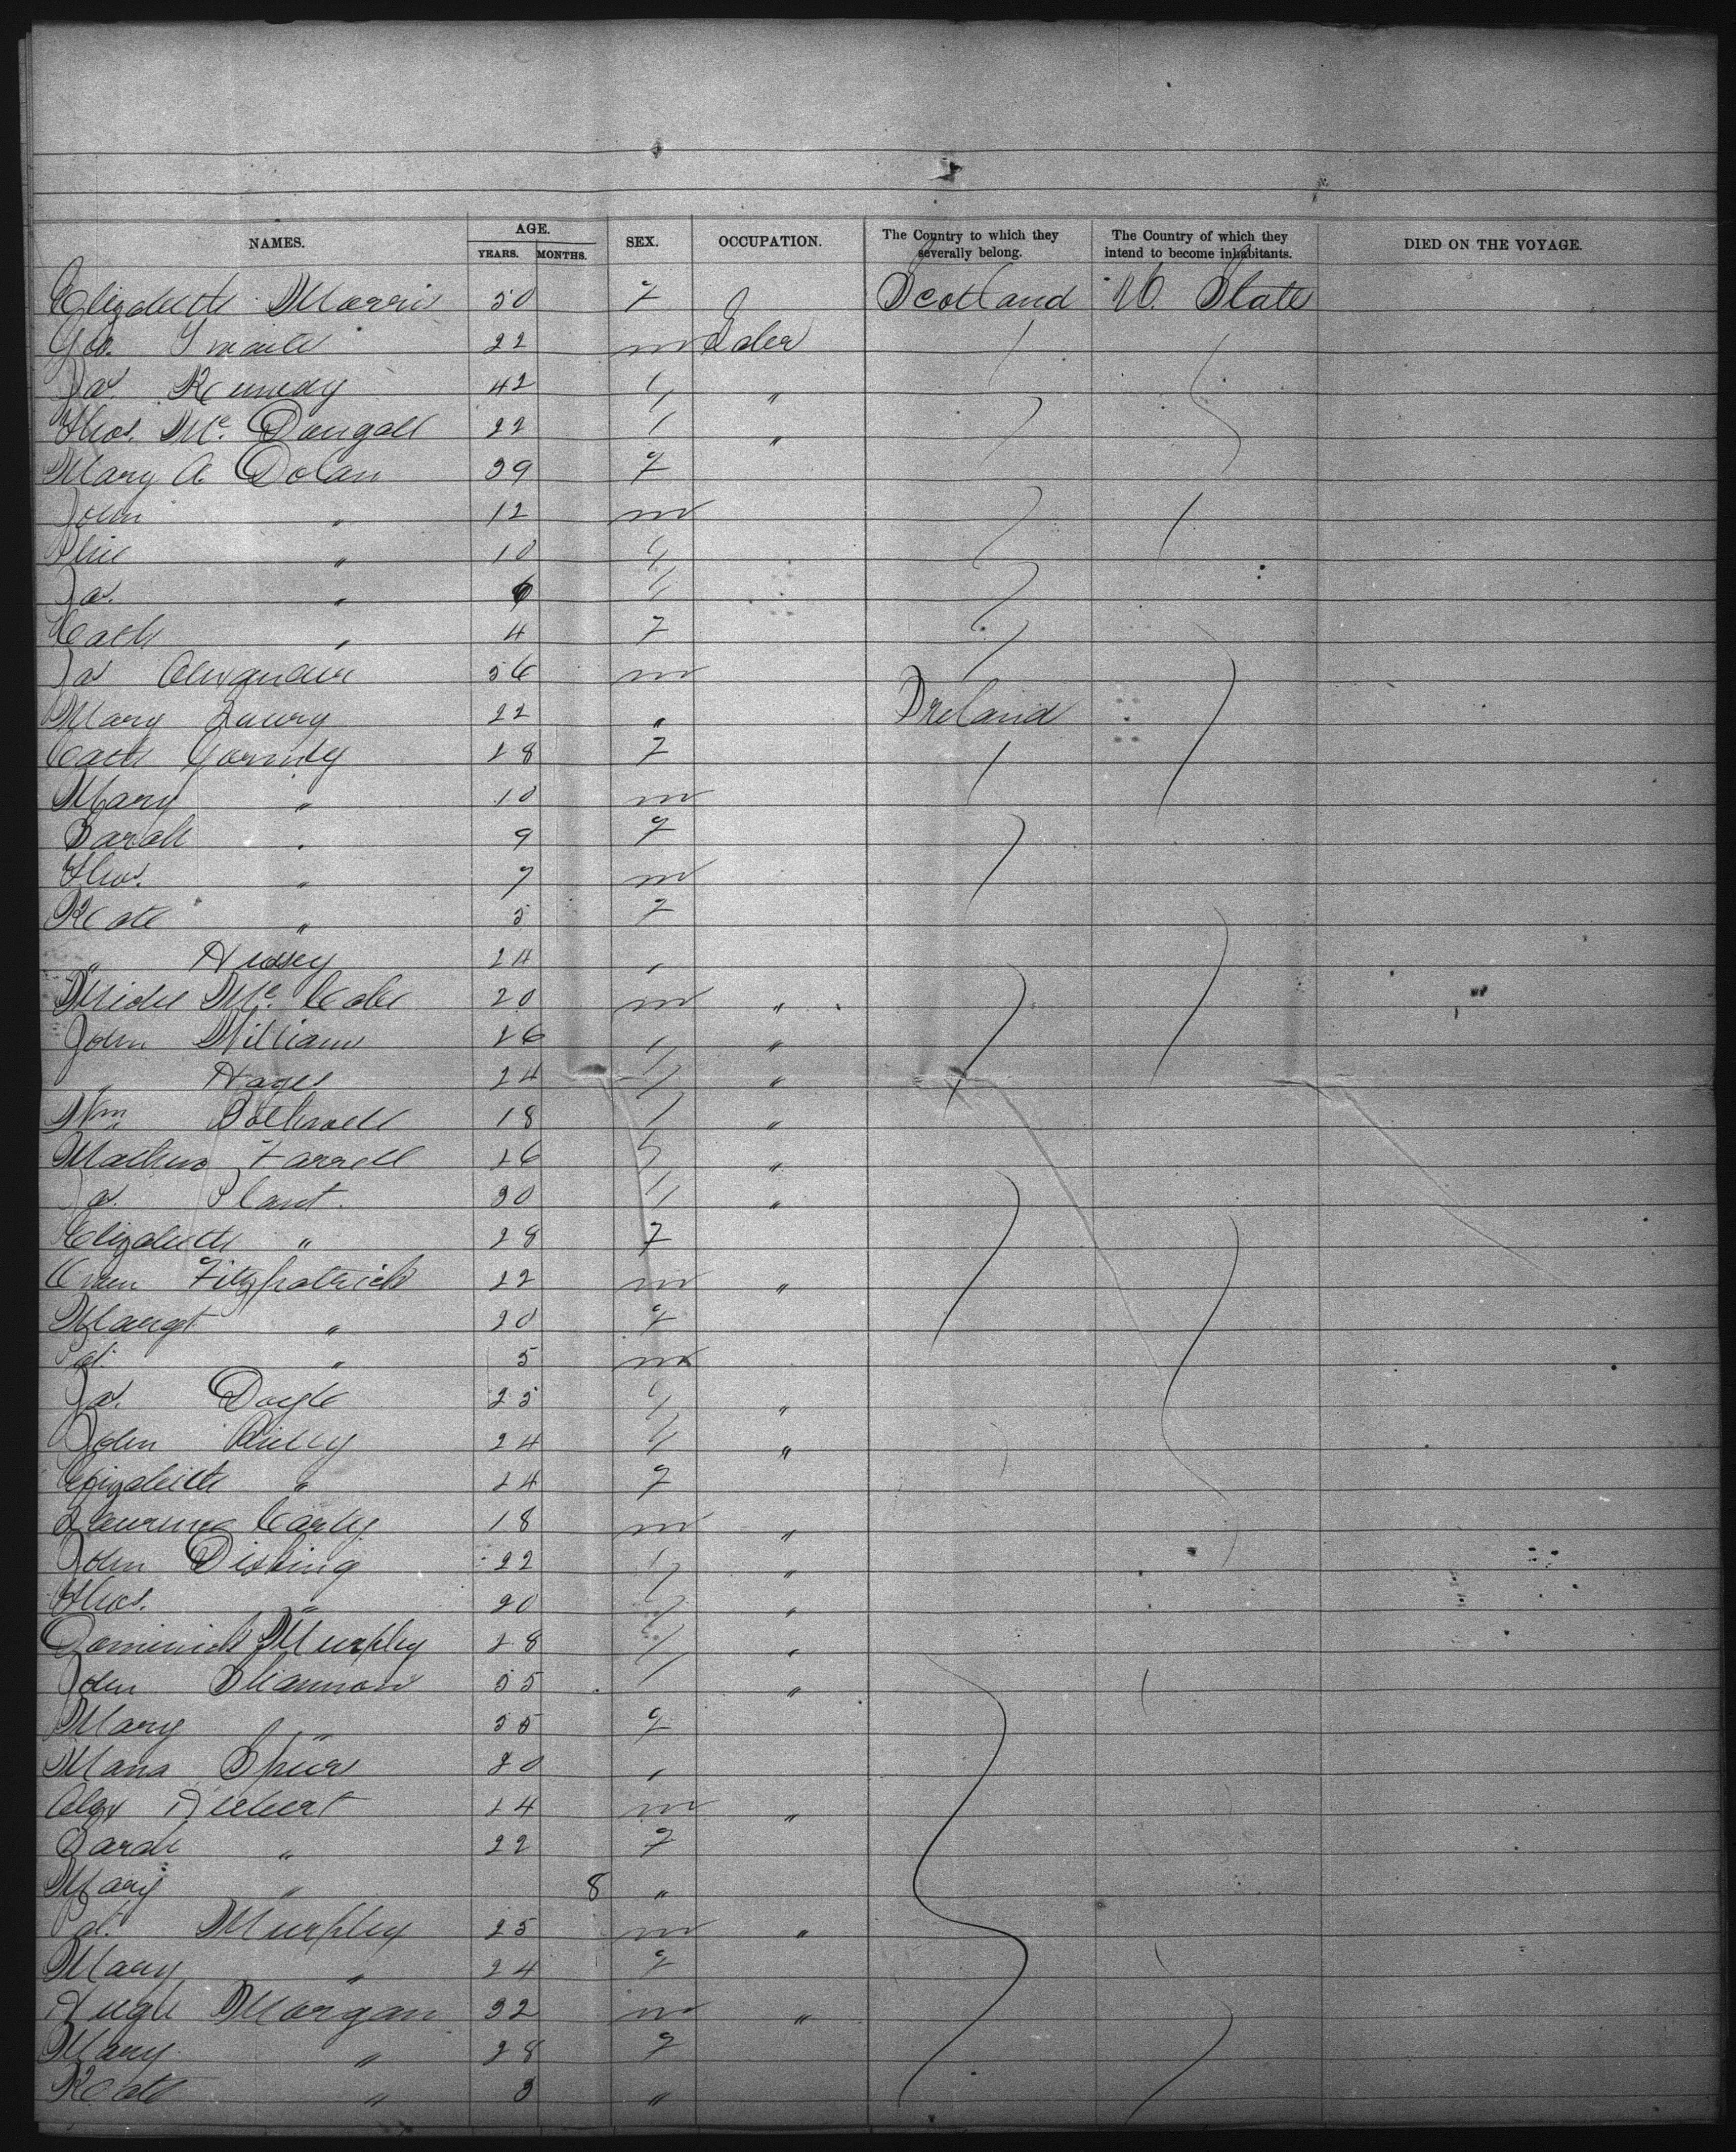 NAMES. AGE. SEX. OCCUPATION. The Country to which they severally belong. The Country of which they intend to become inhabitants. DIED ON THE VOYAGE.
YEARS. MONTHS.
Elizabeth Morris 50 F Scotland U. State
Geo. 22 m
Jas. Kennedy 42 " "
Thos. Mc. Dougall 22 " "
Mary A. Dolan 39 F
John " 12 m
" 10 "
Jas. " 6 "
Cath " 4 F
Jas 56 m
Mary 22 " Ireland
Cath 28 F
Mary " 10 m
Sarah " 9 F
Thos. " 7 m
Kate " 5 F
" 24 "
Mc. Cabe 20 m "
John Williams 26 " "
" Hayes 24 " "
Wm Bothwell 18 " "
Farrell 26 " "
Jas. Plant. 30 " "
Elizabeth " 28 F
Owen Fitzpatrick 22 m "
Margt " 20 F
Pat. " 5 m
Jas. Doyle 25 " "
John Reilly 24 " "
Elizabeth " 24 F
18 m "
John 22 " "
Thos. " 20 " "
Dominick Murphy 28 " "
John Shannon 55 " "
Mary " 55 F
20 "
Alex 24 m "
Sarah " 22 F
Mary " 8 "
Pat. Murphy 25 m "
Mary " 24 F
Hugh Morgan 32 m "
Mary " 28 F
Kate " 3 "